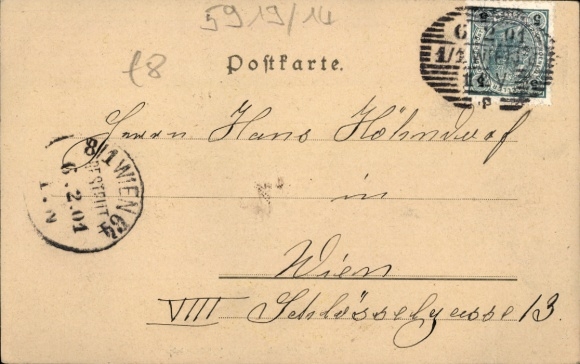 5919/14
£8
Postkarte.
6.2.01
1/1
Herrn Hans Höhndorf
in
Wien
VIII Schlösselgasse 13.
8/1 WIEN
BESTELLT
6.2.01
1.N